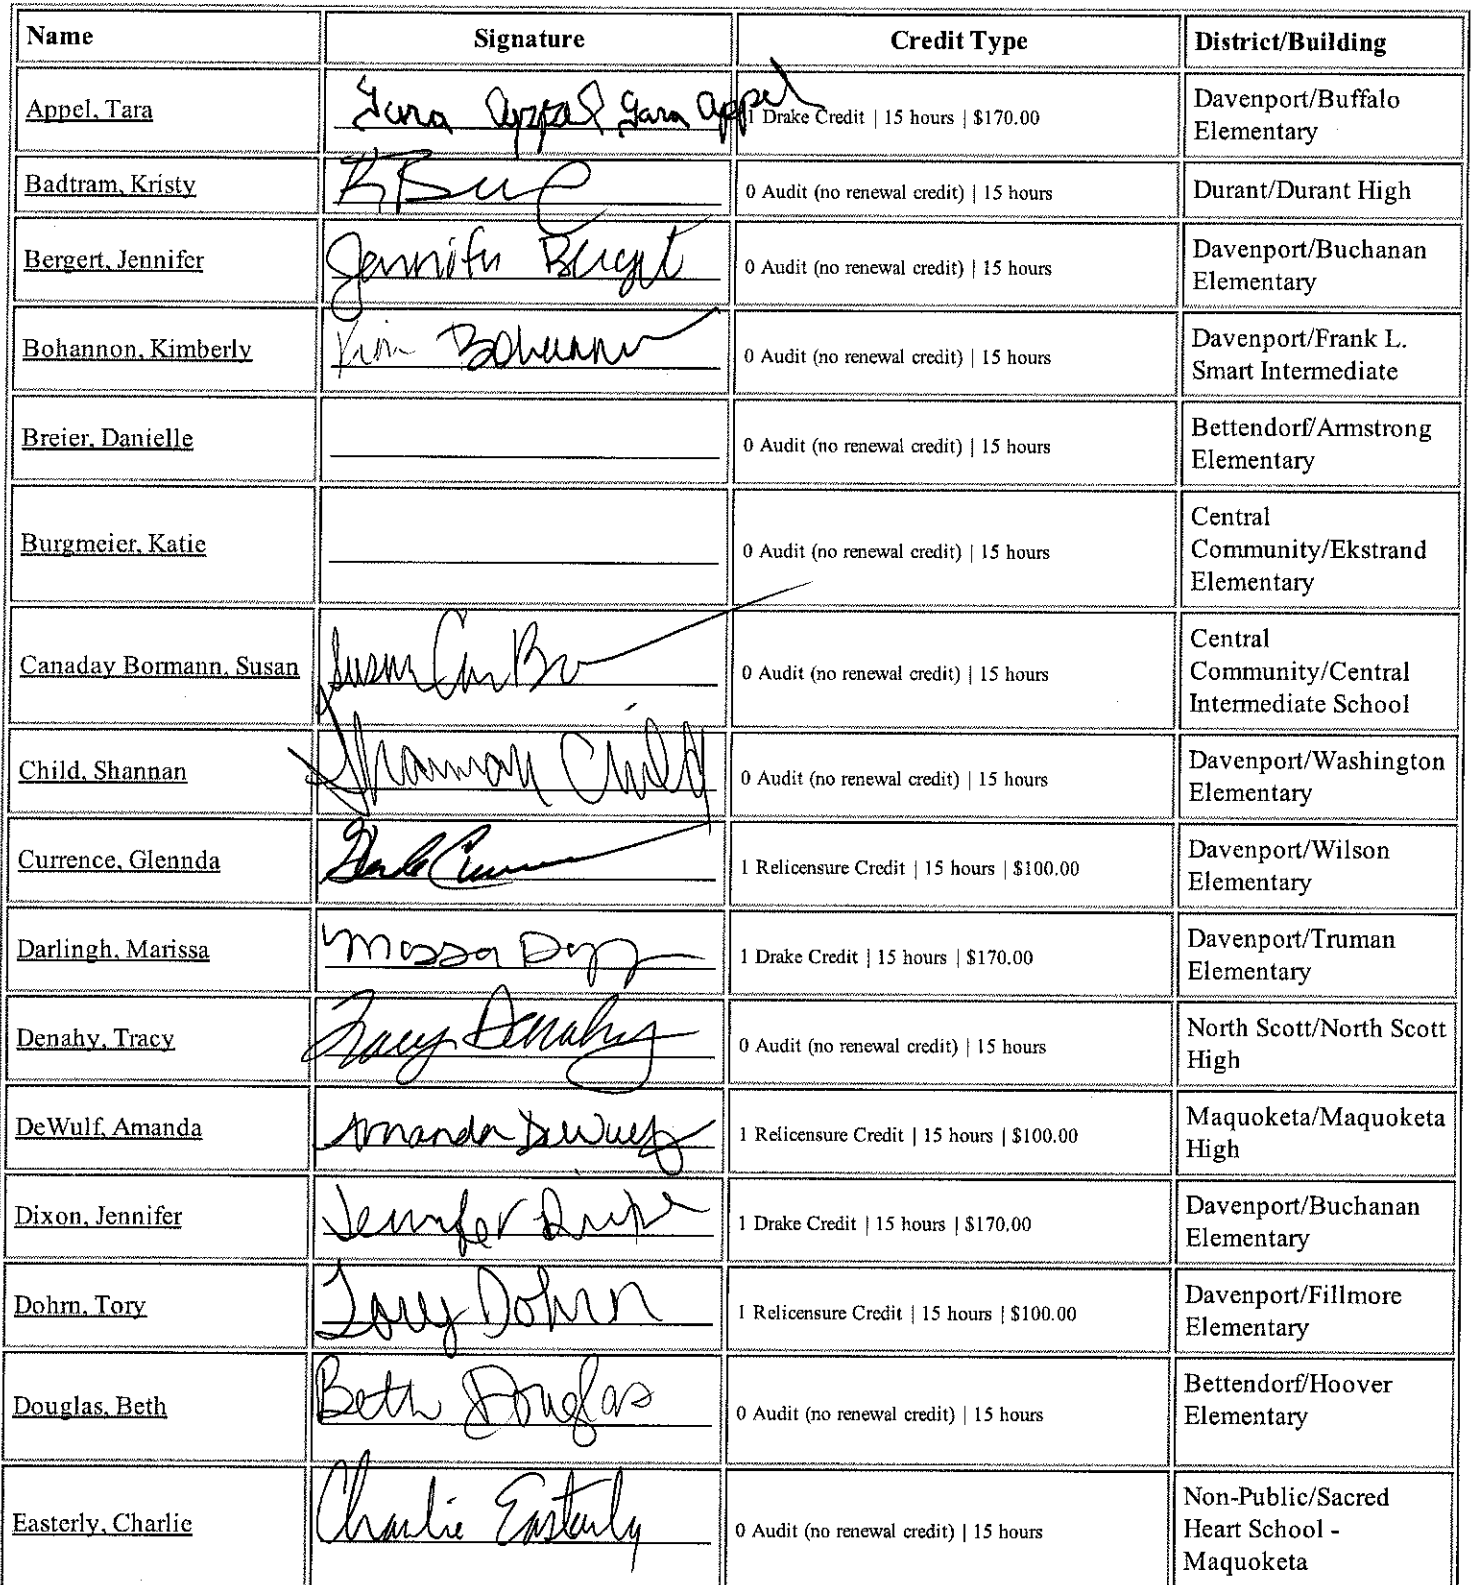 Name Signature Credit Type District/Building
Appel, Tara Tara Appel Tara Appel 1 Drake Credit | 15 hours | $170.00 Davenport/Buffalo
Elementary
Badtram, Kristy 0 Audit (no renewal credit) | 15 hours Durant/Durant High
Bergert, Jennifer Jennifer Bergert 0 Audit (no renewal credit) | 15 hours Davenport/Buchanan
Elementary
Bohannon, Kimberly Kim Bohannon 0 Audit (no renewal credit) | 15 hours Davenport/Frank L.
Smart Intermediate
Breier, Danielle 0 Audit (no renewal credit) | 15 hours Bettendorf/Armstrong
Elementary
Burgmeier, Katie 0 Audit (no renewal credit) | 15 hours Central
Community/Ekstrand
Elementary
Canaday Bormann, Susan Susan 0 Audit (no renewal credit) | 15 hours Central
Community/Central
Intermediate School
Child, Shannan Shannan Child 0 Audit (no renewal credit) | 15 hours Davenport/Washington
Elementary
Currence, Glennda 1 Relicensure Credit | 15 hours | $100.00 Davenport/Wilson
Elementary
Darlingh, Marissa 1 Drake Credit | 15 hours | $170.00 Davenport/Truman
Elementary
Denahy, Tracy Tracy Denahy 0 Audit (no renewal credit) | 15 hours North Scott/North Scott
High
DeWulf, Amanda Amanda DeWulf 1 Relicensure Credit | 15 hours | $100.00 Maquoketa/Maquoketa
High
Dixon, Jennifer Jennifer Dixon 1 Drake Credit | 15 hours | $170.00 Davenport/Buchanan
Elementary
Dohrn, Tory Tory Dohrn 1 Relicensure Credit | 15 hours | $100.00 Davenport/Fillmore
Elementary
Douglas, Beth Beth Douglas 0 Audit (no renewal credit) | 15 hours Bettendorf/Hoover
Elementary
Easterly, Charlie Charlie Easterly 0 Audit (no renewal credit) | 15 hours Non-Public/Sacred
Heart School -
Maquoketa